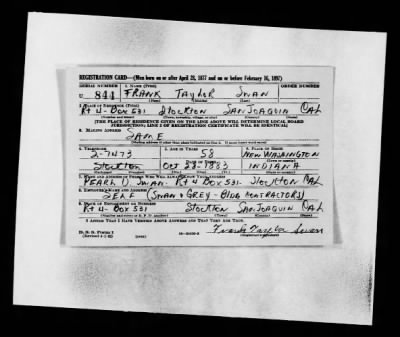 REGISTRATION CARD—(Men born on or after April 28, 1877 and on or before February 16, 1897)
SERIAL NUMBER 1. NAME (Print) ORDER NUMBER
U 844 FRANK TAYLOR SWAN
(First) (Middle) (Last)
2. PLACE OF RESIDENCE (Print)
Rt 4- BOX 531 STOCKTON SAN JOAQUIN CAL
(Number and street) (Town, township, village, or city) (County) (State)
[THE PLACE OF RESIDENCE GIVEN ON THE LINE ABOVE WILL DETERMINE LOCAL BOARD
JURISDICTION; LINE 2 OF REGISTRATION CERTIFICATE WILL BE IDENTICAL]
3. MAILING ADDRESS
SAME
[Mailing address if other than place indicated on line 2. If same insert word same]
4. TELEPHONE 5. AGE IN YEARS 6. PLACE OF BIRTH
2-7473 58 NEW WASHINGTON
DATE OF BIRTH (Town or county)
STOCKTON Oct 1883 INDIANA
(Exchange) (Number) (Mo.) (Day) (Yr.) (State or country)
7. NAME AND ADDRESS OF PERSON WHO WILL ALWAYS KNOW YOUR ADDRESS
PEARL D. SWAN- Rt 4 Box 531- STOCKTON CAL
8. EMPLOYER'S NAME AND ADDRESS
SELF (SWAN & GREY - BLDG CONTRACTORS)
9. PLACE OF EMPLOYMENT OR BUSINESS
Rt 4- BOX 531 STOCKTON SAN JOAQUIN CAL
(Number and street or R. F. D. number) (Town) (County) (State)
I AFFIRM THAT I HAVE VERIFIED ABOVE ANSWERS AND THAT THEY ARE TRUE.
D. S. S. Form 1
Frank Taylor Swan